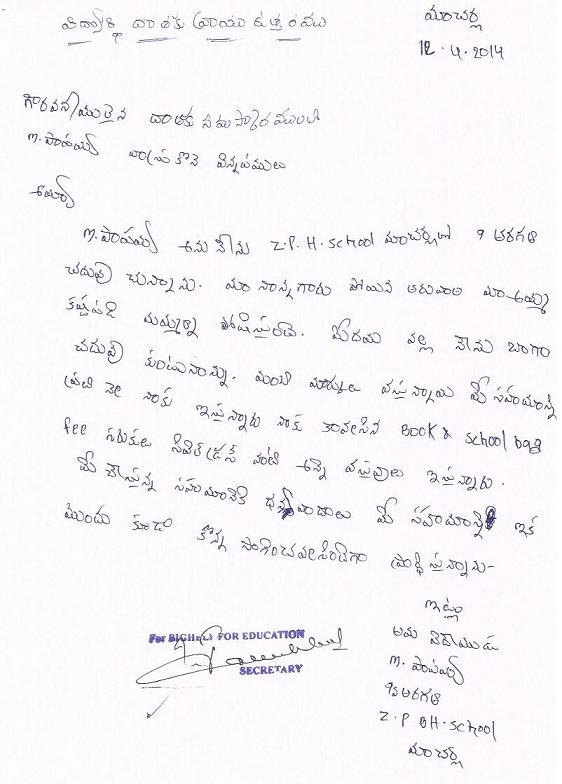 విద్యార్థి దాతకు వ్రాయు ఉత్తరము
మాచర్ల
12.4.2014
గౌరవనీయులైన దాతకు నమస్కారములు
m.పాపయ్య వ్రాసుకొనె విన్నపములు
అయ్యా
m.పాపయ్య అను నేను Z.P.H.school మాచర్లలో 9 తరగతి
చదువు చున్నాను. మా నాన్నగారు పోయిన తరువాత మా అమ్మ
కష్టపడి మమ్మల్ని పోషిస్తుంది. మీ దయ వల్ల నేను బాగా
చదువు కుంటున్నాను. మంచి మార్కులు వస్తున్నాయి మీ సహాయాన్ని
ప్రతి నాకు ఇస్తున్నారు నాకు కావలసిన BOOK & school bag
fee సివిల్ డ్రస్ వంటి అన్ని వస్తువులు ఇస్తున్నారు.
మీ చేస్తున్న సహాయానికి ధన్యవాదాలు మీ సహాయాన్ని ఇక
ముందు కూడా కొన సాగించవలసిందిగా ప్రార్థిస్తున్నాను-
ఇట్లు
తమ విధేయుడు
m. పాపయ్య
9వ తరగతి
Z.P BH.school
మాచర్ల
For BIGHELP FOR EDUCATION
SECRETARY